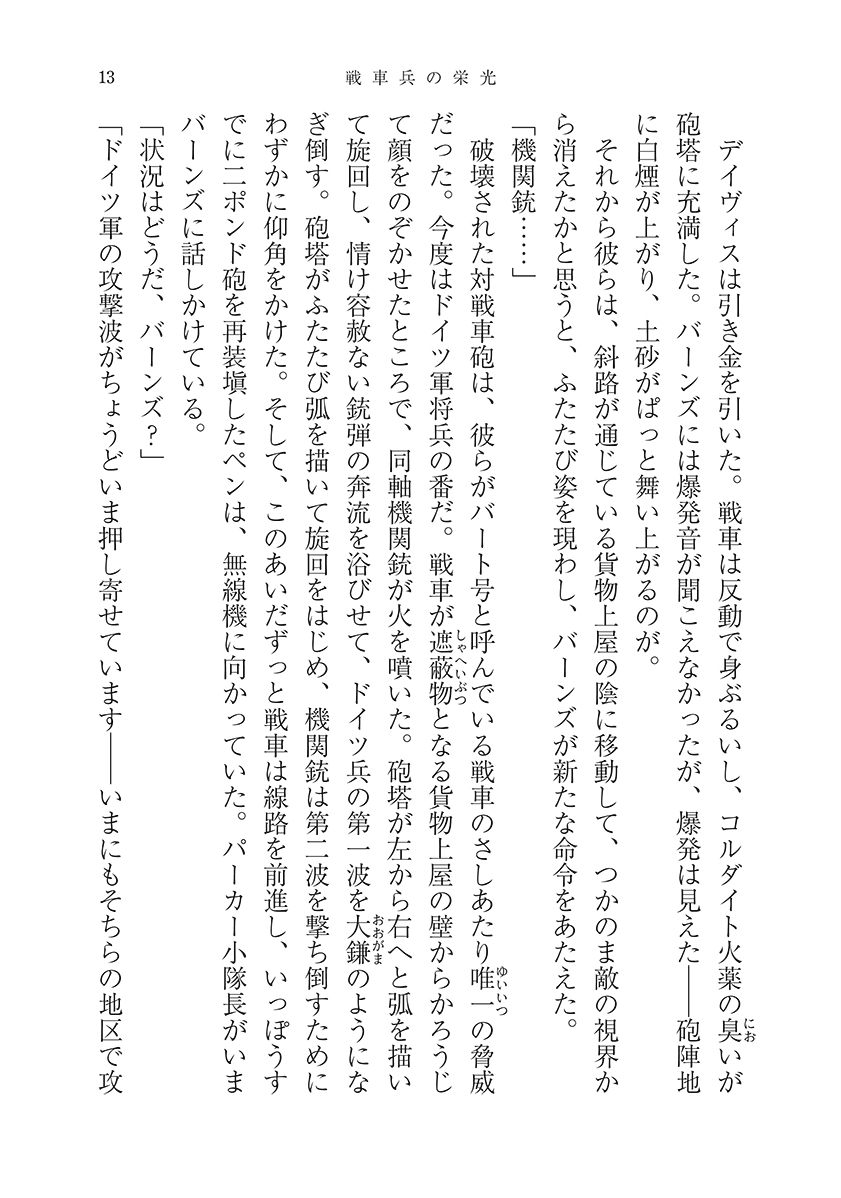 13
戦車兵の栄光
デイヴィスは引き金を引いた。戦車は反動で身ぶるいし、コルダイト火薬の臭いが
にお
砲塔に充満した。バーンズには爆発音が聞こえなかったが、爆発は見えた――砲陣地
に白煙が上がり、土砂がぱっと舞い上がるのが。
それから彼らは、斜路が通じている貨物上屋の陰に移動して、つかのま敵の視界か
ら消えたかと思うと、ふたたび姿を現わし、バーンズが新たな命令をあたえた。
「機関銃……」
破壊された対戦車砲は、彼らがバート号と呼んでいる戦車のさしあたり唯一の脅威
ゆいいつ
だった。今度はドイツ軍将兵の番だ。戦車が遮蔽物となる貨物上屋の壁からかろうじ
しゃへいぶつ
て顔をのぞかせたところで、同軸機関銃が火を噴いた。砲塔が左から右へと弧を描い
て旋回し、情け容赦ない銃弾の奔流を浴びせて、ドイツ兵の第一波を大鎌のようにな
おおがま
ぎ倒す。砲塔がふたたび弧を描いて旋回をはじめ、機関銃は第二波を撃ち倒すために
わずかに仰角をかけた。そして、このあいだずっと戦車は線路を前進し、いっぽうす
でに二ポンド砲を再装塡したペンは、無線機に向かっていた。パーカー小隊長がいま
バーンズに話しかけている。
「状況はどうだ、バーンズ?」
「ドイツ軍の攻撃波がちょうどいま押し寄せています――いまにもそちらの地区で攻